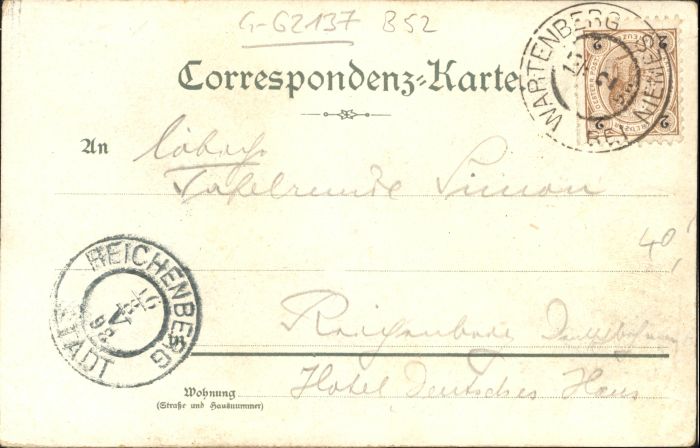 G-G2137 B52
Correspondenz-Karte
WARTENBERG BEI NIEMES
2 2 2 2
An Löbliche
Tafelrunde Simon
40
REICHENBERG STADT
98
Reichenberg
Hotel Deutsches Haus
Wohnung
(Straße und Hausnummer)